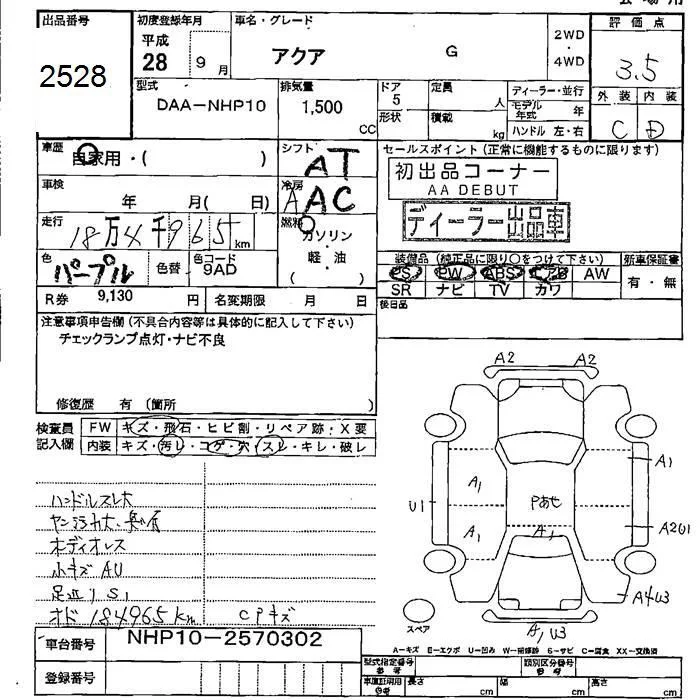 出品番号
2528
初度登録年月
平成
28 9月
車名・グレード
アクア G
2WD
・
4WD
評価点
3.5
型式
DAA-NHP10
排気量
1,500 CC
ドア
5
形状
定員 人
積載 kg
ディーラー・並行
モデル年式 年
ハンドル 左・右
外装 内装
C D
車歴
自家用・( )
シフト
AT
車検
年 月( 日)
冷房
AAC
走行
18万4千965km
燃料
ガソリン
・
軽・油
( )
色
パープル
色替
色コード
9AD
R券 9,130 円
名変期限 月 日
セールスポイント(正常に機能するものに限ります)
初出品コーナー
AA DEBUT
ディーラー出品車
装備品(純正品に限り○をつけて下さい)
PS PW ABS エアB AW
SR ナビ TV カワ
新車保証書
有・無
後日品
注意事項申告欄(不具合内容等は具体的に記入して下さい)
チェックランプ点灯・ナビ不良
修復歴 有(箇所 )
検査員
記入欄
FW キズ・飛石・ヒビ割・リペア跡・X要
内装 キズ・汚レ・コゲ・穴・スレ・キレ・破レ
ハンドルスレ大
オーディオレス
小キズ AU
オド 184965km CPキズ
車台番号
NHP10-2570302
登録番号
A2 A2
A1
A1
U1
Pあせ
A1
A1
A2U1
A4U3
A1U3
スペア
A-キズ E-エクボ U-凹み W-補修跡 S-サビ C-腐食 XX-交換済
型式指定番号
参考
類別区分番号
参考
車庫証明用
参考
長さ cm
幅 cm
高さ cm